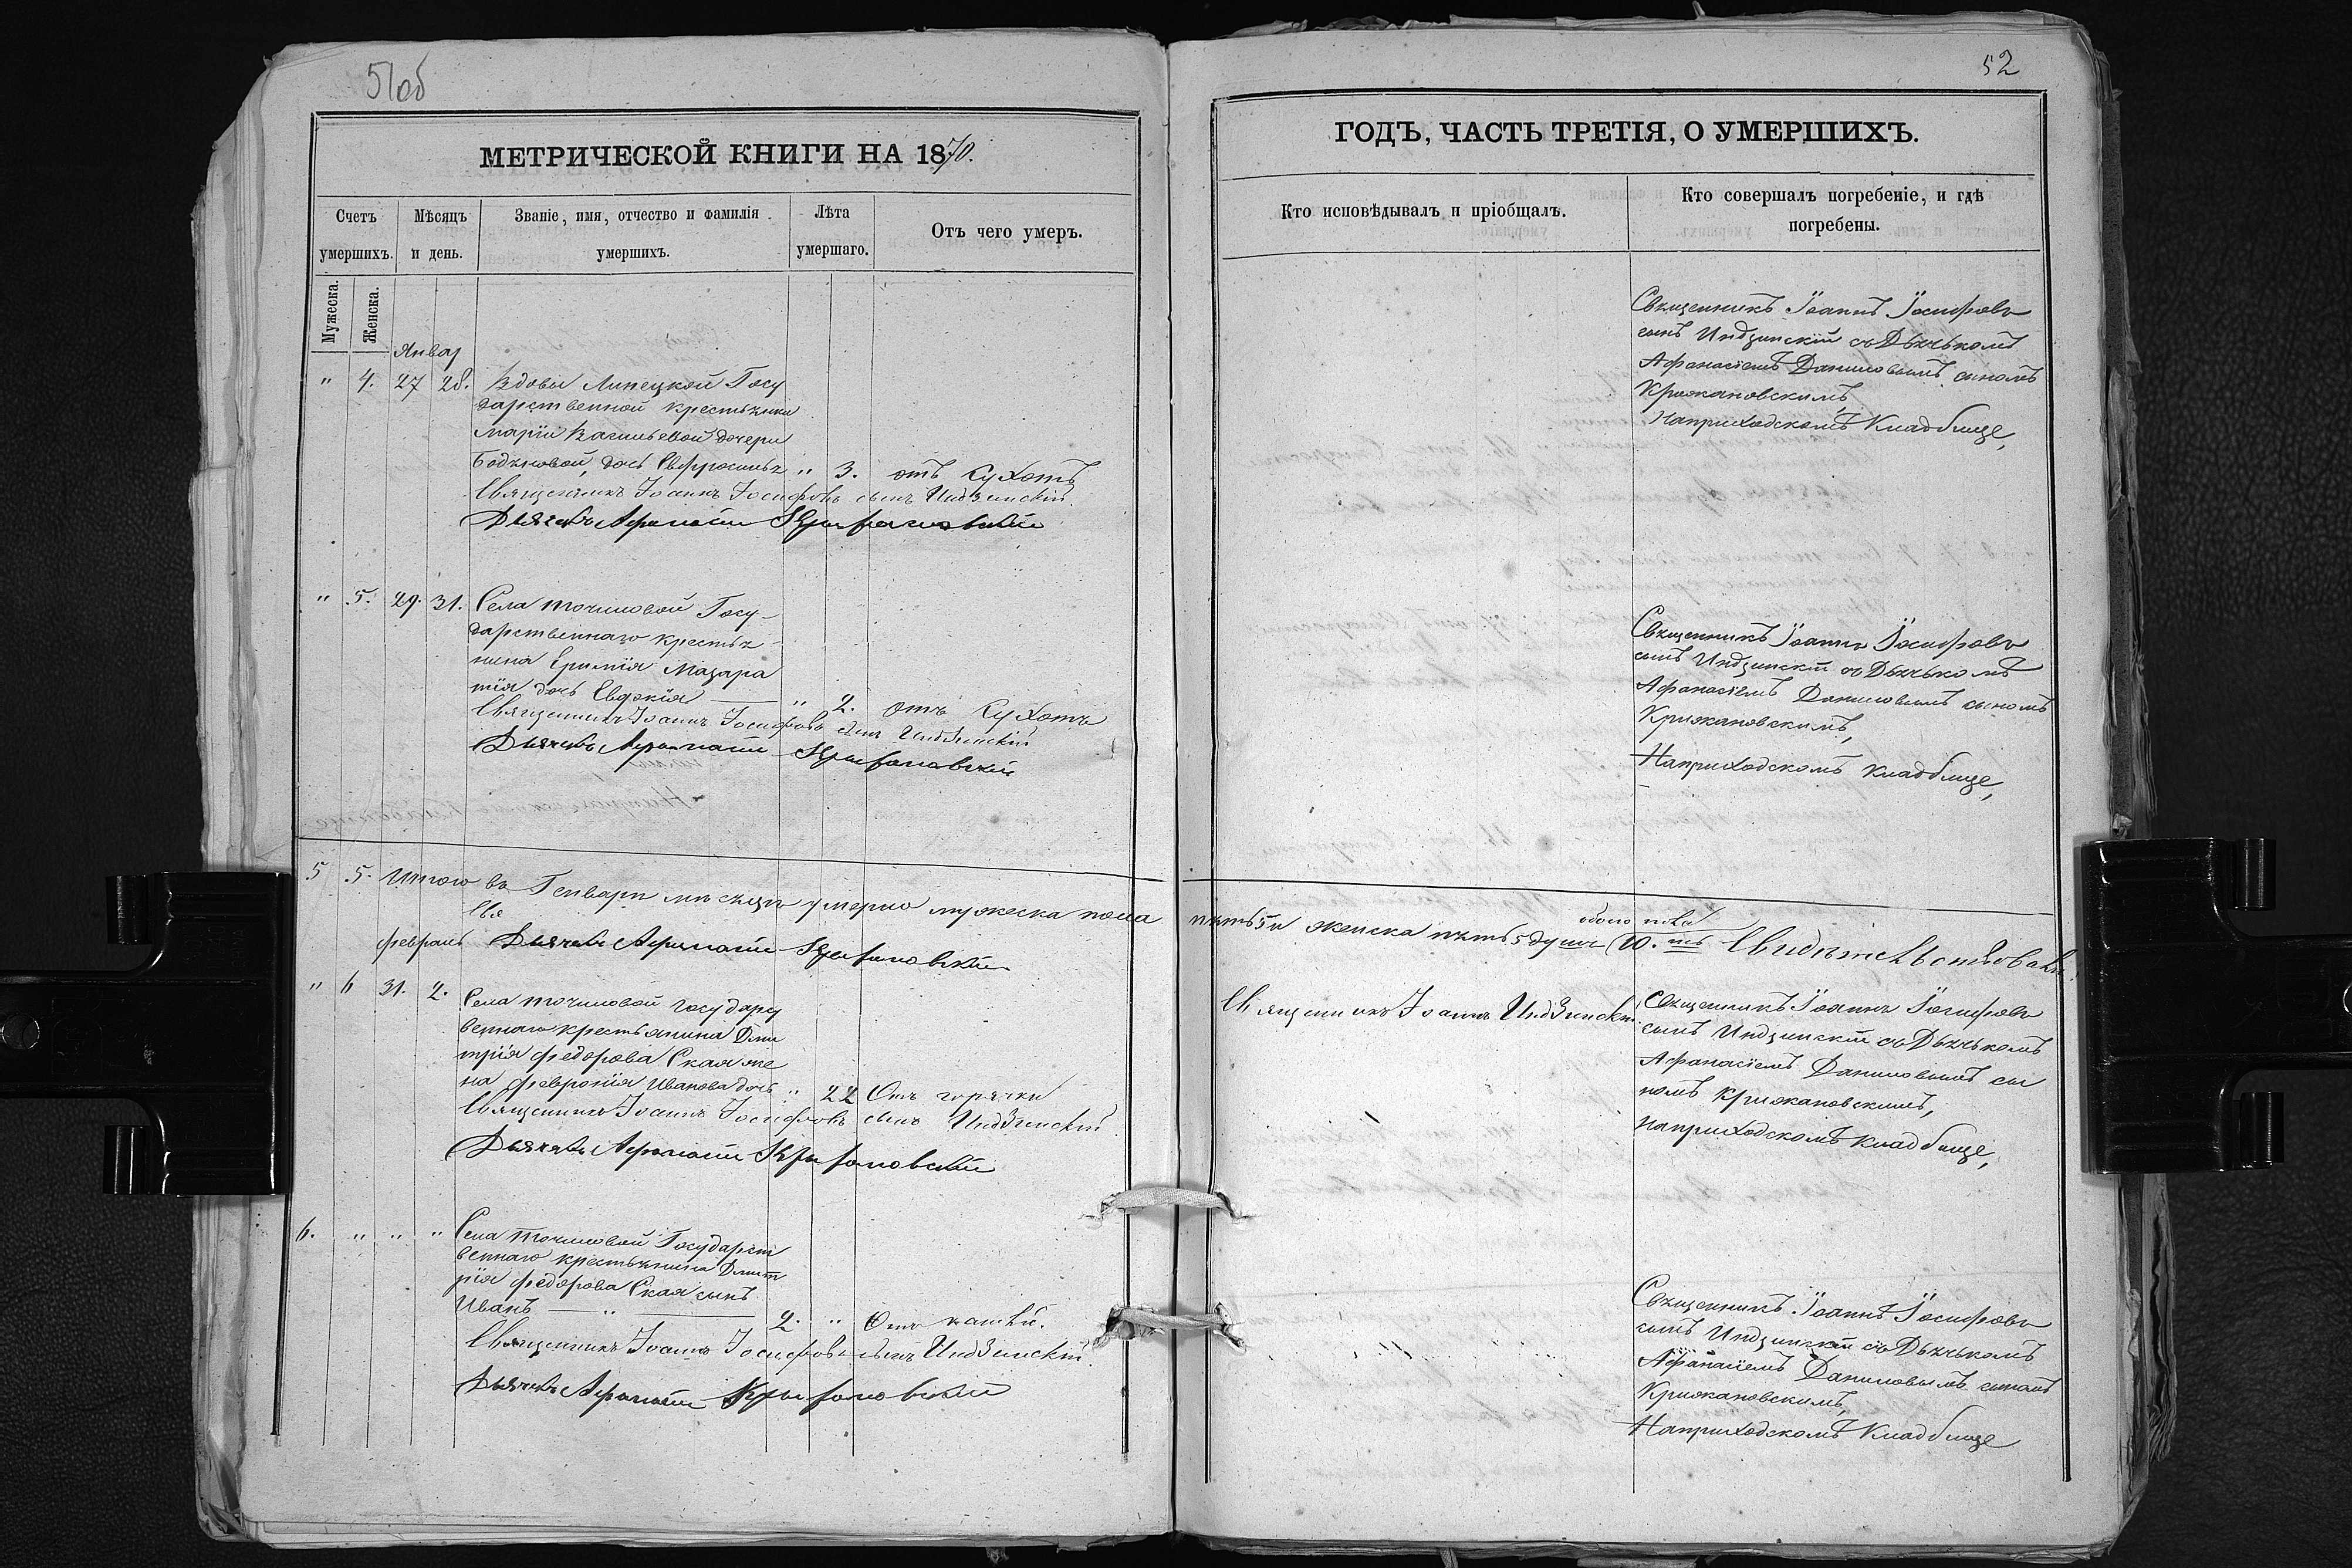 51об
МЕТРИЧЕСКОЙ КНИГИ НА 1870.
Счетъ умершихъ.
Мѣсяцъ и день.
Званіе, имя, отчество и фамилія умершихъ.
Лѣта умершаго.
Отъ чего умеръ.
Мужеска.
Женска.
Январ
" 4. 27 28. Вдовы Липецкой Госу
дарственной крестьянки
Маріи Васильевой дочери
Бодяновой, дочь Евфросинья " 3. отъ Сухотъ
Священникъ Іоаннъ Іосифовъ сынъ Индзинскій
Дьячекъ Афанасій Крижановскій
" 5. 29. 31. Села Точиловой Госу-
дарственнаго крестья-
нина Еримія Мазара
тія дочь Евдокія " 2. отъ Сухотъ
Священникъ Іоаннъ Іосифовъ сынъ Индзинскій
Дьячекъ Афанасій Крижановскій
5 5. Итого въ Генварѣ мѣсяцѣ умерло мужеска пола
Свя
февраль Дьячекъ Афанасій Крижановскій
" 6 31. 2. Села Точиловой Государс
веннаго крестьянина Дми
трія Федорова Скал же
на Февронія Иванова дочь " 22 Отъ горячки
Священникъ Іоаннъ Іосифовъ сынъ Индзинскій
Дьячекъ Афанасій Крижановскій
6. " " " Села Точиловой Государст
веннаго крестьянина Дмит
рія Федорова Скал сынъ
Иванъ — " — 2. " Отъ кашлю.
Священникъ Іоаннъ Іосифовъ сынъ Индзинскій
Дьячекъ Афанасій Крижановскій
52
ГОДЪ, ЧАСТЬ ТРЕТІЯ, О УМЕРШИХЪ.
Кто исповѣдывалъ и пріобщалъ.
Кто совершалъ погребеніе, и гдѣ
погребены.
Священникъ Іоаннъ Іосифовъ
сынъ Индзинскій съ Дьячькомъ
Афанасіемъ Даниловымъ сыномъ
Крижановскимъ,
Наприходскомъ Кладбище,
Священникъ Іоаннъ Іосифовъ
сынъ Индзинскій съ Дьячькомъ
Афанасіемъ Даниловымъ сыномъ
Крижановскимъ,
Наприходскомъ кладбище,
обоего пола
пять 5 и женска пять 5 душъ (10.ть Свидѣтельствовалъ
Священникъ Іоаннъ Индзинскій
Священникъ Іоаннъ Іосифовъ
сынъ Индзинскій съ Дьячькомъ
Афанасіемъ Даниловымъ сы
номъ Крижановскимъ,
Наприходскомъ Кладбище,
Священникъ Іоаннъ Іосифовъ
сынъ Индзинскій съ Дьячькомъ
Афанасіемъ Даниловымъ сыномъ
Крижановскимъ,
Наприходскомъ Кладбище